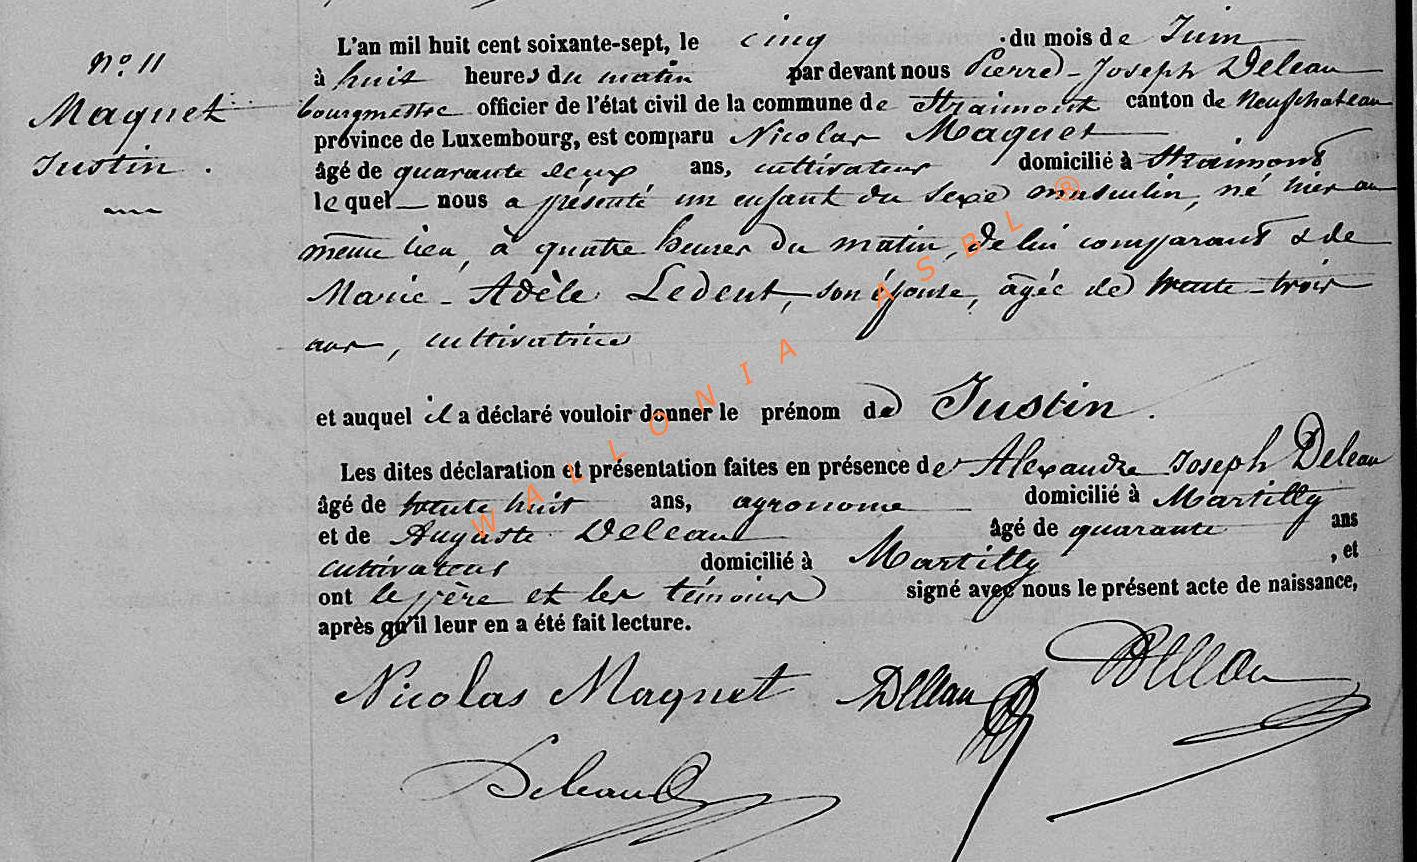 N° 11
Maquet
Justin.
L'an mil huit cent soixante-sept, le cinq du mois de Juin
à huit heures du matin par devant nous Pierre-Joseph Deleau
bourgmestre officier de l'état civil de la commune de Straimont canton de Neufchateau
province de Luxembourg, est comparu Nicolas Maquet
âgé de quarante deux ans, cultivateur domicilié à Straimont
lequel nous a présenté un enfant du sexe masculin, né hier au
même lieu, à quatre heures du matin, de lui comparant & de
Marie-Adèle Ledent, son épouse, agée de trente-trois
ans, cultivatrice
et auquel il a déclaré vouloir donner le prénom de Justin.
Les dites déclaration et présentation faites en présence de Alexandre Joseph Deleau
âgé de trente huit ans, agronome domicilié à Martilly
et de Auguste Deleau âgé de quarante ans
cultivateur domicilié à Martilly, et
ont le père et les témoins signé avec nous le présent acte de naissance,
après qu'il leur en a été fait lecture.
Nicolas Maquet Deleau Deleau
Deleau
WALLONIA ASBL ®